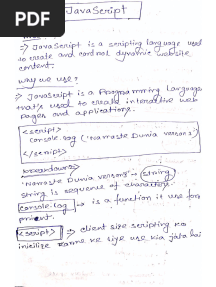 PDF
JavaScript
=> JavaScript is a scripting language used
to create and control dynamic website
content.
why we use?
=> JavaScript is a Programming Language
that's used to create interactive web
pages and applications.
<script>
console.log ('Namaste Dunia verson')
</script>
'Namaste Dunia verson' → string
string is sequence of characters.
console.log → is a function it use for
print.
<script> => client size scripting ko
ke liye use kia jata hai